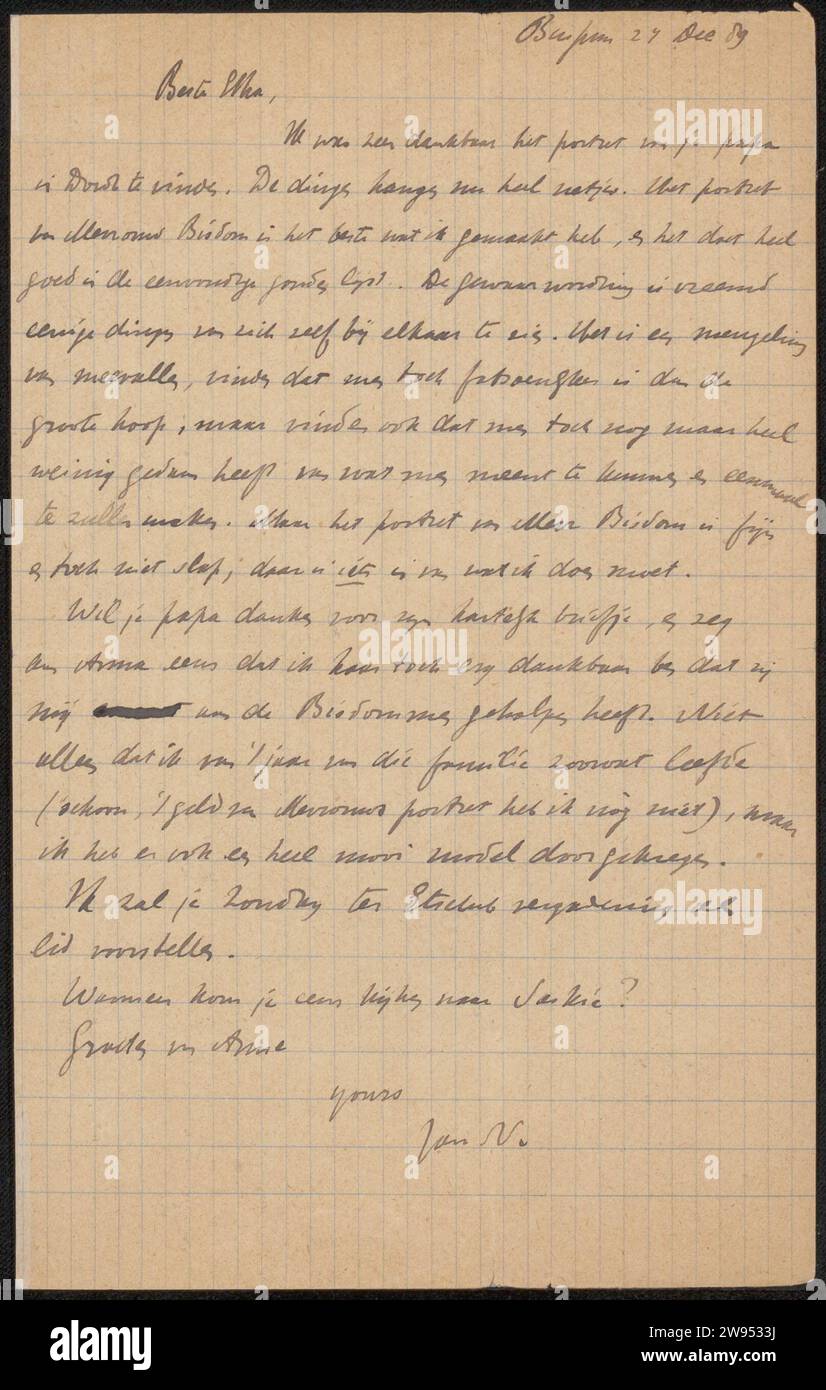 Bussum 27 Dec 89
Beste Etha,
Ik was zeer dankbaar het portret van je papa
in Dordt te vinden. De dingen hangen nu heel netjes. Het portret
van Mevrouw Bisdom is het beste wat ik gemaakt heb, en het doet heel
goed in de eenvoudige gouden lijst. De gewaarwording is vreemd
eenige dingen van zich zelf bij elkaar te zien. Het is een mengeling
van meevallen, vinden dat men toch fatsoenlijker is dan de
groote hoop, maar vinden ook dat men toch nog maar heel
weinig gedaan heeft van wat men meent te kunnen en eenmaal
te zullen maken. Maar het portret van Mevr Bisdom is fijn
en toch niet slap; daar is iets in van wat ik doen moet.
Wil je papa danken voor zijn hartelijk briefje, en zeg
aan Anna eens dat ik haar toch erg dankbaar ben dat zij
mij aan de Bisdommen geholpen heeft. Niet
alleen dat ik van 't jaar van die familie zoowat leefde
(schoon, 't geld van Mevrouws portret heb ik nog niet), maar
ik heb er ook een heel mooi model door gekregen.
Ik zal je Zondag ter Etsclub vergadering als
lid voorstellen.
Wanneer kom je eens kijken naar Saskia?
Groeten van Anna
yours
Jan V.
alamy
alamy
alamy
a
a
a
a
a
a
alamy
Image ID: 2W9533J
www.alamy.com